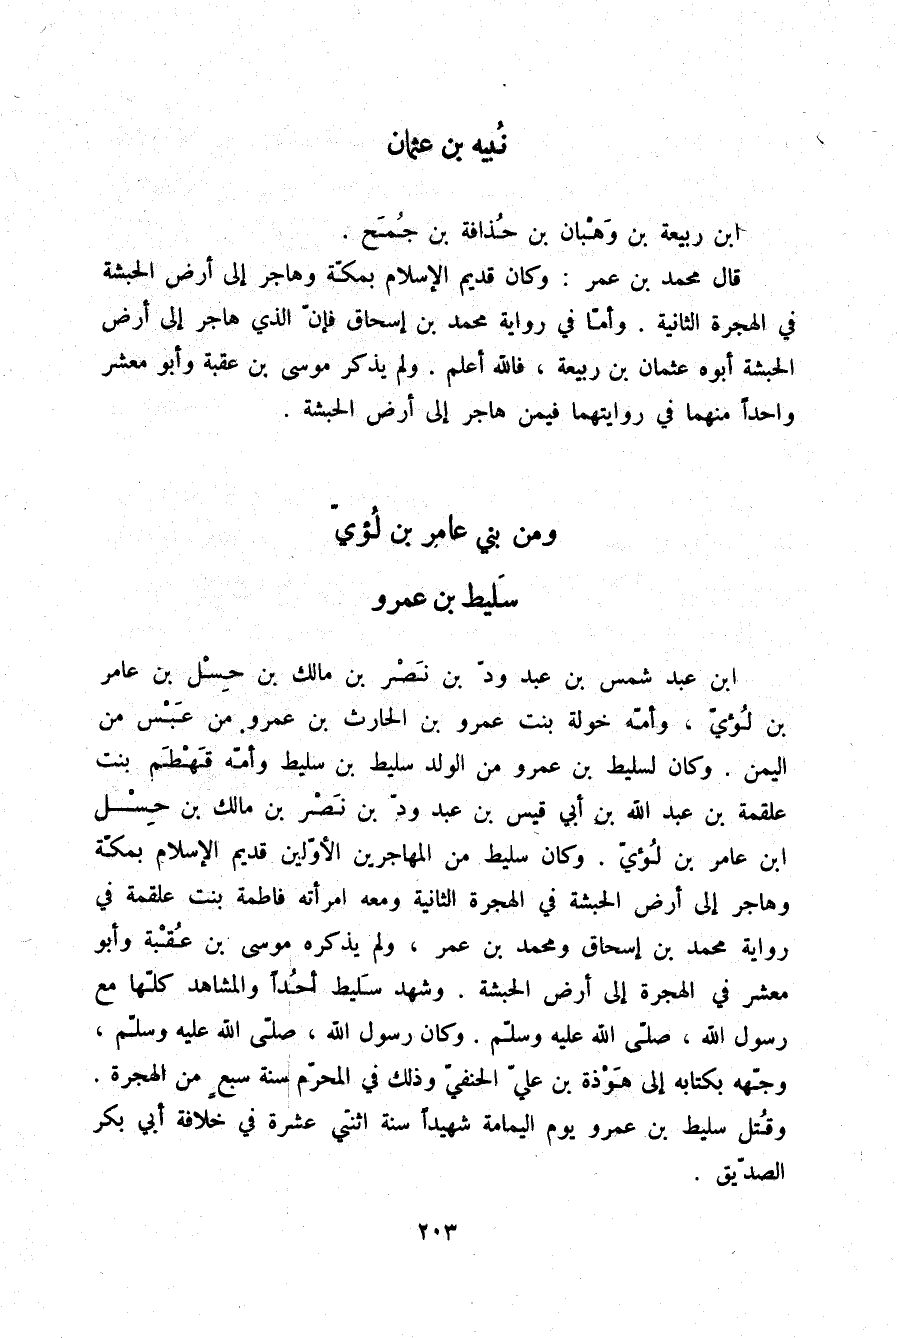 نُبيه بن عثمان
ابن ربيعة بن وَهْبان بن حُذافة بن جُمَح .
قال محمد بن عمر : وكان قديم الإسلام بمكّة وهاجر إلى أرض الحبشة
في الهجرة الثانية . وأمّا في رواية محمد بن إسحاق فإنّ الذي هاجر إلى أرض
الحبشة أبوه عثمان بن ربيعة ، فالله أعلم . ولم يذكر موسى بن عقبة وأبو معشر
واحداً منهما في روايتهما فيمن هاجر إلى أرض الحبشة .
ومن بني عامِر بن لُؤيّ
سَليط بن عمرو
ابن عبد شمس بن عبد ودّ بن نَصْر بن مالك بن حِسْل بن عامر
بن لُؤيّ ، وأمّه خولة بنت عمرو بن الحارث بن عمرو من عَبْس من
اليمن . وكان لسليط بن عمرو من الولد سليط بن سليط وأمّه قَهْطَم بنت
علقمة بن عبد الله بن أبي قيس بن عبد ودّ بن نَصْر بن مالك بن حِسْل
ابن عامر بن لُؤيّ . وكان سليط من المهاجرين الأوّلين قديم الإسلام بمكّة
وهاجر إلى أرض الحبشة في الهجرة الثانية ومعه امرأته فاطمة بنت علقمة في
رواية محمد بن إسحاق ومحمد بن عمر ، ولم يذكره موسى بن عُقْبة وأبو
معشر في الهجرة إلى أرض الحبشة . وشهد سَليط أُحُداً والمشاهد كلّها مع
رسول الله ، صلّى الله عليه وسلّم . وكان رسول الله ، صلّى الله عليه وسلّم ،
وجّهه بكتابه إلى هَوْذة بن عليّ الحنفيّ وذلك في المحرّم سنة سبعٍ من الهجرة .
وقُتل سليط بن عمرو يوم اليمامة شهيداً سنة اثنتي عشرة في خلافة أبي بكر
الصدّيق .
٢٠٣